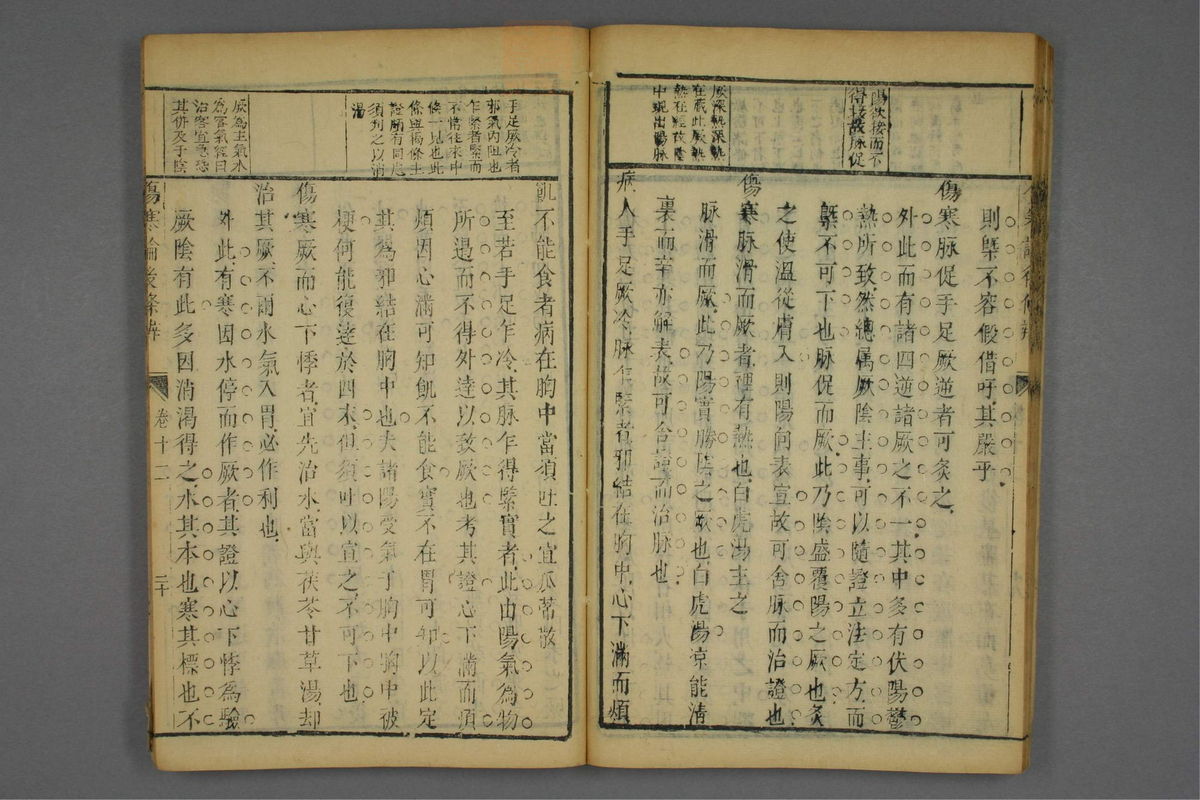 陽欲接而不
得接故脉促
厥深熱深熱
在藏此厥熱
熱在經故陰
中現出陽脉
則槩不容假借吁其嚴乎
傷寒脉促手足厥逆者可灸之
外此而有諸四逆諸厥之不一其中灸有伏陽鬱
熱所致然總属厥陰主事可以隨證立法定方而
槩不可下也脉促而厥此乃陰盛覆陽之厥也灸
之使溫從膚入則陽向表宣故可舍脉而治證也
傷寒脉滑而厥者裡有熱也白虎湯主之
脉滑而厥此乃陽實勝陰之厥也白虎湯凉能清
裏而辛亦解表故可舍證而治脉也
病人手足厥冷脉乍緊者邪結在胸中心下滿而煩
手足厥冷者
邪氣內阻也
乍緊者緊而
不常往來中
條一見也此
條與梔條主
證頗有同處
須列之以消
湯
厥為主氣水
為客氣經曰
治客宜急恐
其併及于陰
飢不能食者病在胸中當須吐之宜瓜蒂散
至若手足乍冷其脉乍得緊實者此由陽氣為物
所遏而不得外達以致厥也考其證心下滿而煩
煩因心滿可知飢不能食實不在胃可知以此定
其為邪結在胸中也夫諸陽受氣于胸中胸中被
梗何能復達於四末但須吐以宣之不可下也
傷寒厥而心下悸者宜先治水當與茯苓甘草湯却
治其厥不爾水氣入胃必作利也
外此有寒因水停而作厥者其證以心下悸為驗
厥陰有此多因消渴得之水其本也寒其標也不
傷寒論後條辨
卷十二
二十